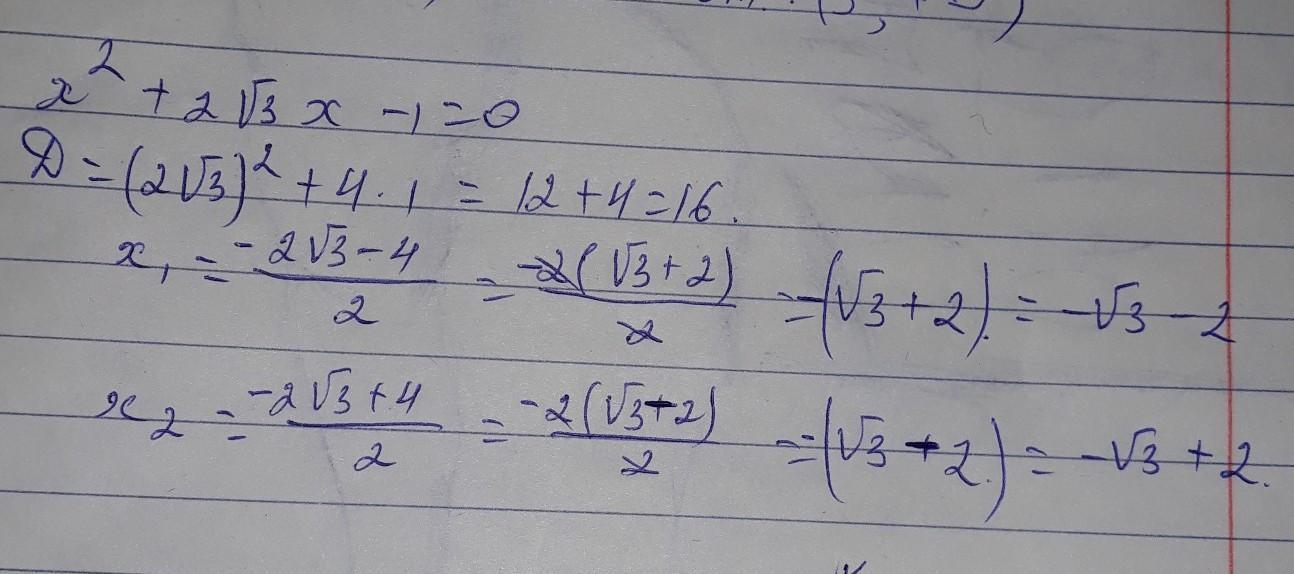 x² + 2√3 x - 1 = 0
D = (2√3)² + 4 · 1 = 12 + 4 = 16.
x₁ = (-2√3 - 4)/2 = -2(√3 + 2)/2 = -(√3 + 2). = -√3 - 2
x₂ = (-2√3 + 4)/2 = -2(√3 - 2)/2 = -(√3 - 2.) = -√3 + 2.